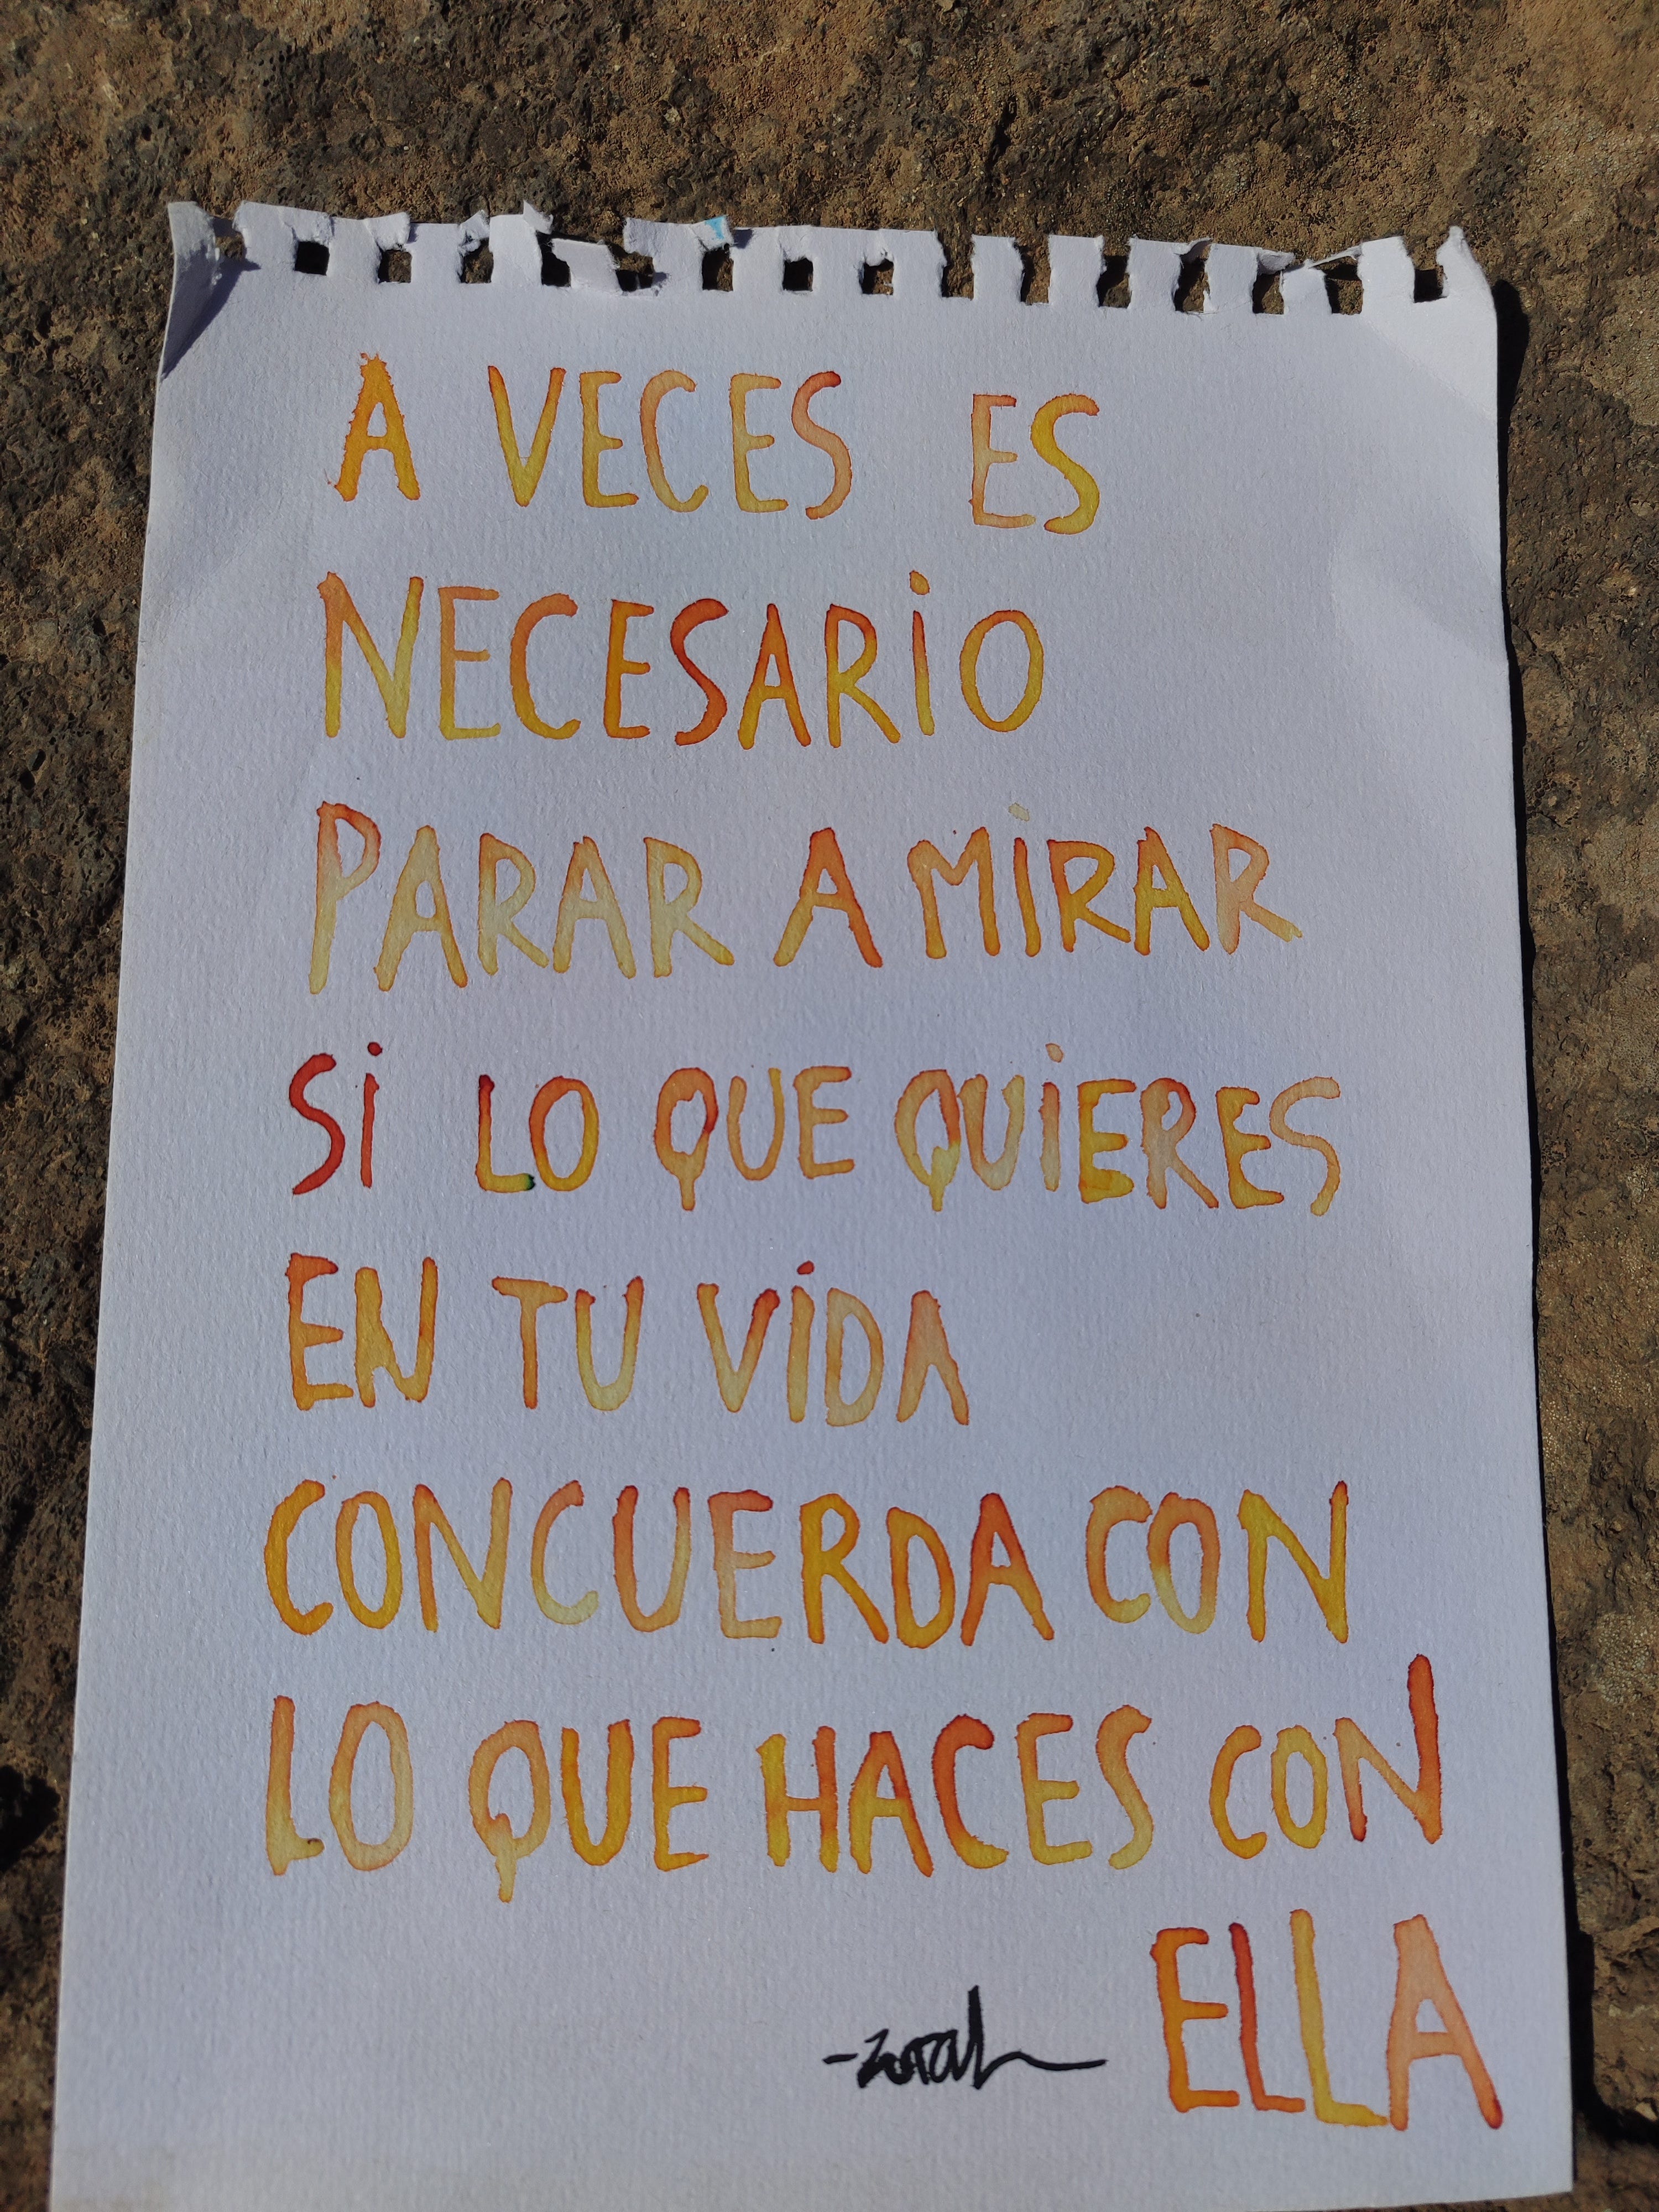 A VECES ES
NECESARIO
PARAR A MIRAR
SI LO QUE QUIERES
EN TU VIDA
CONCUERDA CON
LO QUE HACES CON
ELLA